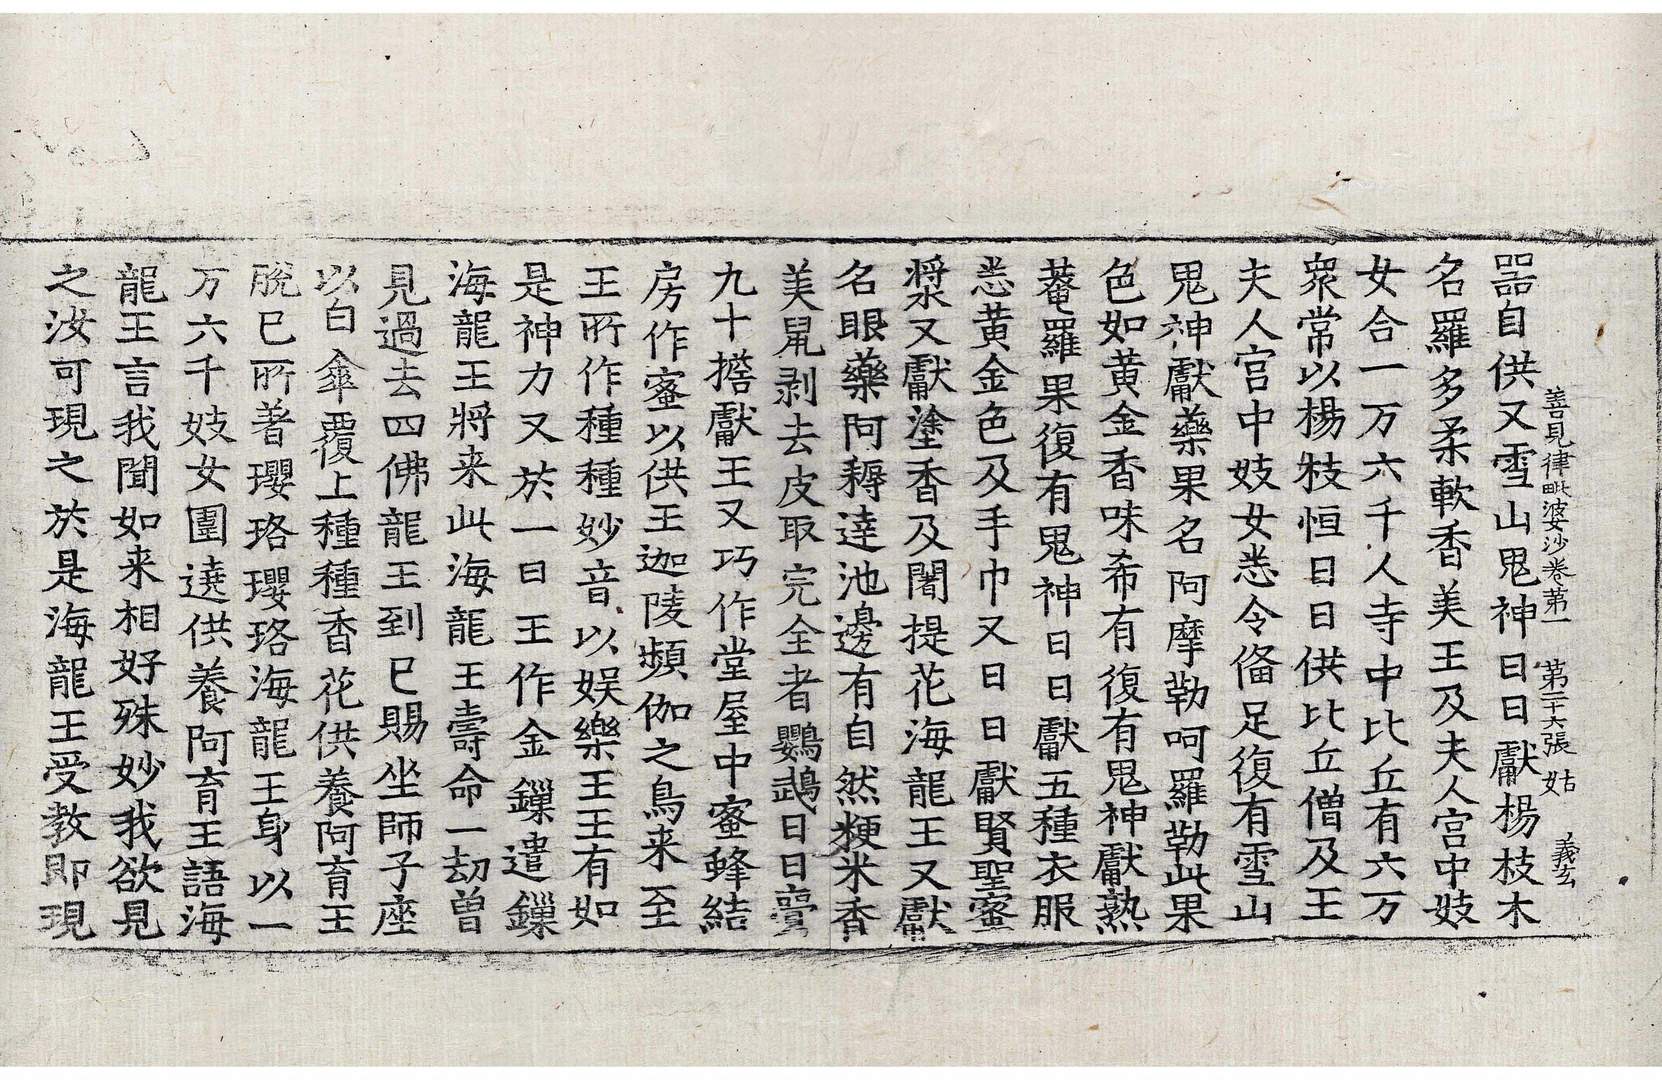 善見律毗婆沙卷第一 第二十六張 姑 義玄
器自供又雪山鬼神日日獻楊枝木
名羅多柔軟香美王及夫人宮中妓
女合一万六千人寺中比丘有六万
衆常以楊枝恒日日供比丘僧及王
夫人宮中妓女悉令俻足復有雪山
鬼神獻藥果名阿摩勒呵羅勒此果
色如黃金香味希有復有鬼神獻熟
菴羅果復有鬼神日日獻五種衣服
悉黃金色及手巾又日日獻賢聖蜜
漿又獻塗香及闍提花海龍王又獻
名眼藥阿耨達池邊有自然粳米香
美鼠剥去皮取完全者鸚鵡日日賷
九十擔獻王又巧作堂屋中蜜蜂結
房作蜜以供王迦陵頻伽之鳥来至
王所作種種妙音以娱樂王王有如
是神力又於一日王作金鏁遣鏁
海龍王將来此海龍王壽命一劫曽
見過去四佛龍王到已賜坐師子座
以白傘覆上種種香花供養阿育王
脫已所著瓔珞瓔珞海龍王身以一
万六千妓女圍遶供養阿育王語海
龍王言我聞如来相好殊妙我欲見
之汝可現之於是海龍王受教即現